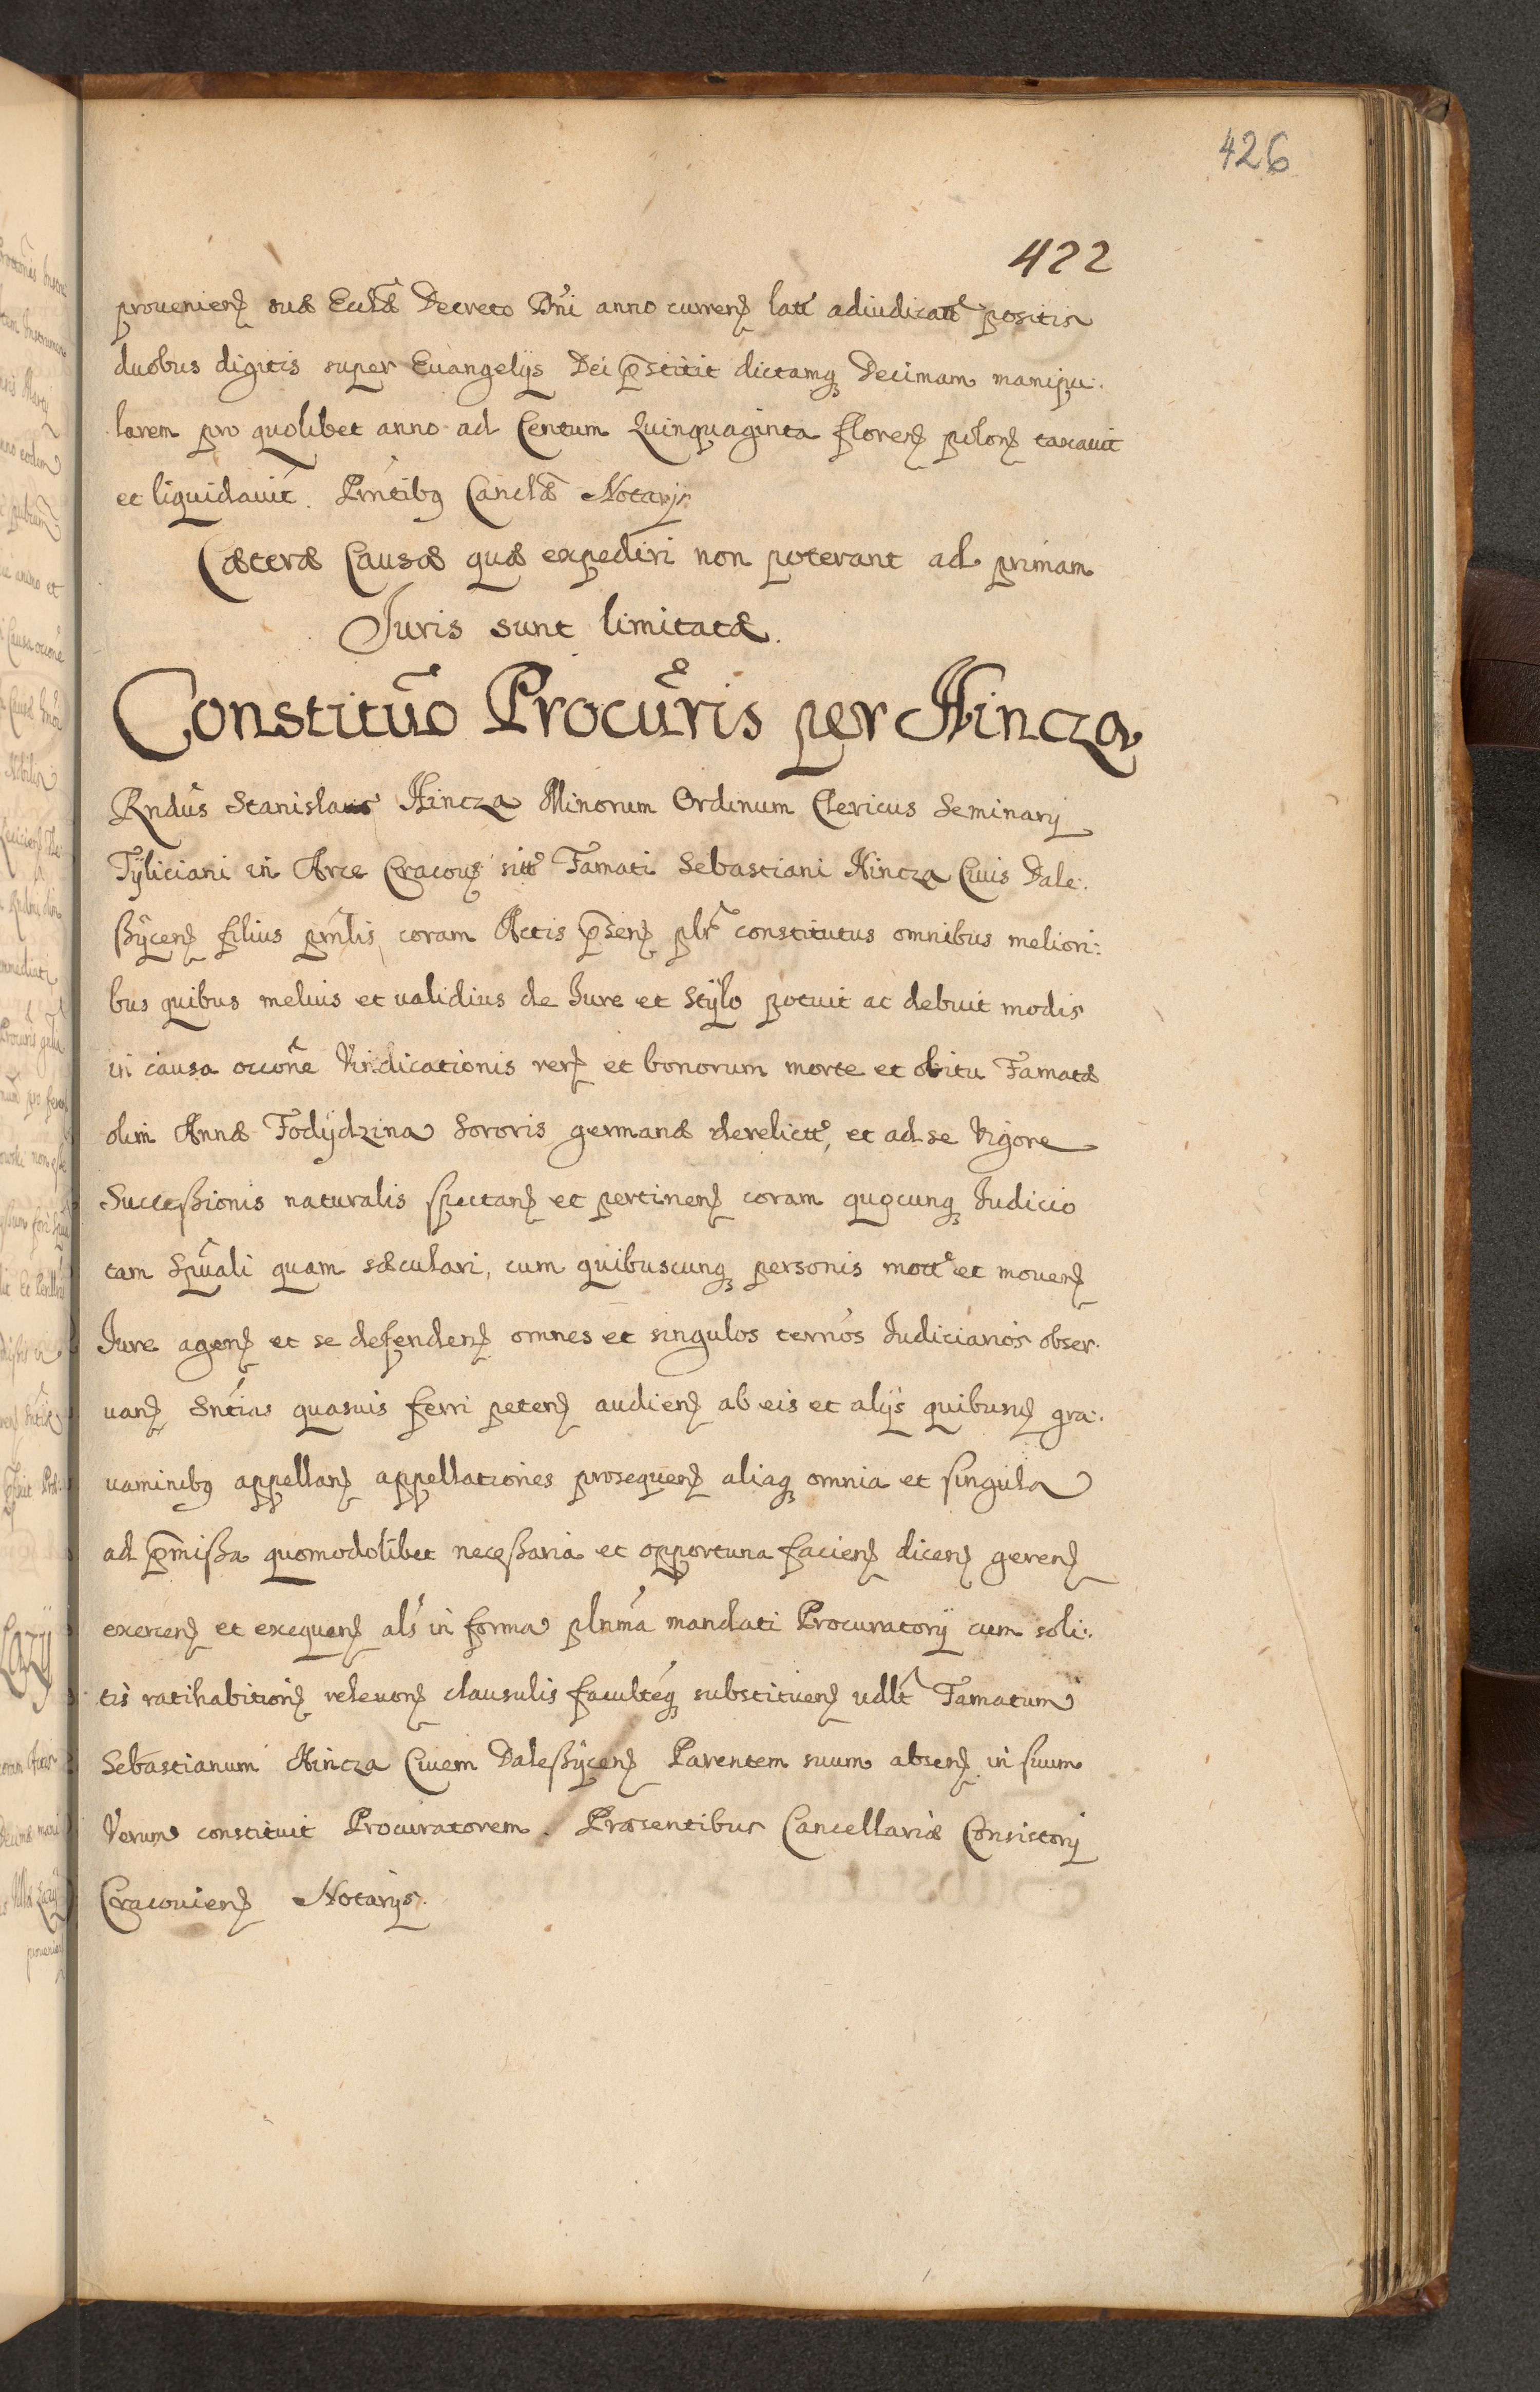 426
422
prouenień suæ Eccłæ Decreto Dni anno curreń latt adiudicatt positis
duobus digitis super Euangelijs Dei p̄stitit dictamq̨ Decimam manipu:
larem pro quolibet anno ad Centum Quinquaginta floreń poloń taxauit
et liquidauit. Pn̄tibq̨ Cancłæ Notarijs.
Cæteræ Causæ quæ expediri non poterant ad primam
Juris sunt limitatæ.
Constituo Procuris per Hincza
Rndus Stanislaus Hincza Minorum Ordinum Clericus Seminarij
Tÿliciani in Arce Cracoui sitt Famati Sebastiani Hincza Ciuis Dale:
ßÿceń filius pn̄lis coram Actis p̄seń plr constitutus omnibus meliori:
bus quibus melius et ualidius de Iure et Stÿlo potuit ac debuit modis
in causa occōne Vindicationis reŕ et bonorum morte et obitu Famatæ
olim Annæ Fodÿdzina Sororis germanæ derelictt, et ad se Vigore
Succeßionis naturalis spectań et pertineń coram quocunq̨ Iudicio
tam Spuali quam sæculari, cum quibuscunq̨ personis mott et moueń
Iure ageń et se defendeń omnes et singulos ternos Iudiciarios obser:
uań Sntias quasuis ferri peteń audień ab eis et alijs quibusuis gra:
uaminibq̨ appellań appellationes prosequeń aliaq̨ omnia et singula
ad p̄mißa quomodolibet neceßaria et opportuna facień diceń gereń
exerceń et exequeń als in forma plnma mandati Procuratorij cum soli:
tis ratihabitioń releuoń clausulis facultéq̨ substitueń udlt Famatum
Sebastianum Hincza Ciuem Daleßÿceń Parentem suum abseń in suum
Verum constituit Procuratorem. Præsentibus Cancellariæ Consistorij
Cracouień Notarijs.